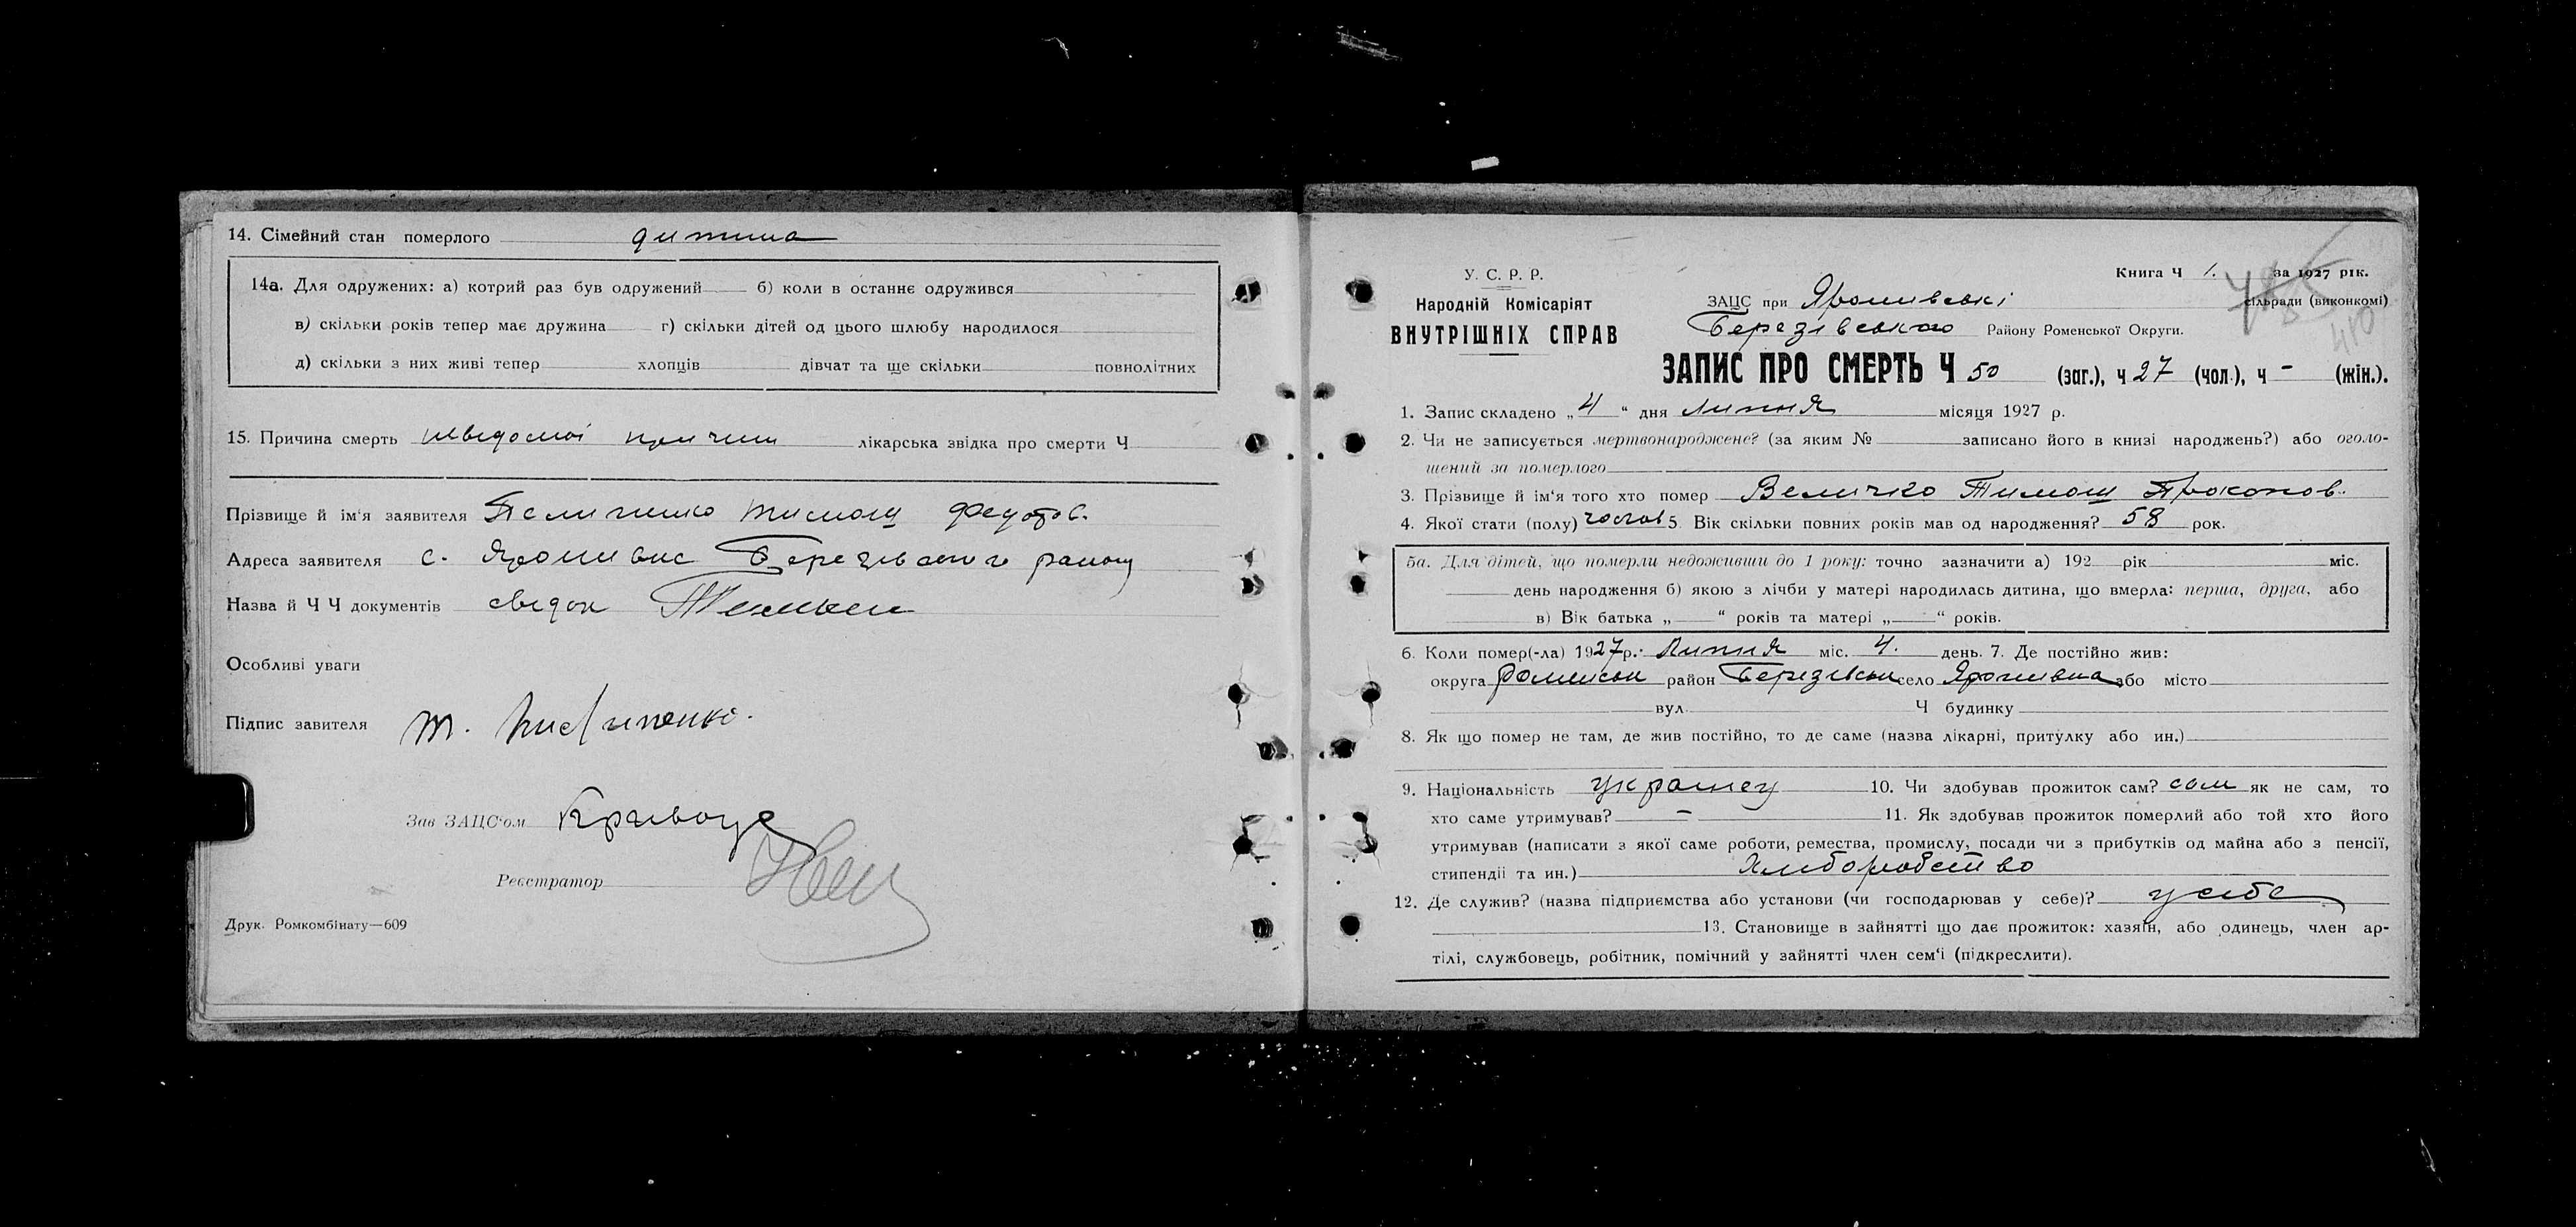 14. Сімейний стан померлого дитина
14а. Для одружених: а) котрий раз був одружений б) коли в останнє одружився
в) скільки років тепер має дружина г) скільки дітей од цього шлюбу народилося
д) скільки з них живі тепер хлопців дівчат та ще скільки повнолітних
15. Причина смерть невідомої причини лікарська звідка про смерти Ч
Прізвище й ім'я заявителя Тимош Федотов.
Адреса заявителя с. Яромивка Березівського району
Назва й Ч Ч документів свідок
Особливі уваги
Підпис завителя Т.
Зав ЗАЦС'ом
Реєстратор
Друк. Ромкомбінату—609
Книга Ч 1. за 1927 рік.
У. С. Р. Р.
Народній Комісаріят
ВНУТРІШНІХ СПРАВ
ЗАЦС при Яромивські сільради (виконкомі)
Березівського Району Роменської Округи.
410
ЗАПИС ПРО СМЕРТЬ Ч 50 (заг.), ч 27 (чол.), ч - (жін.).
1. Запис складено „4" дня Липня місяця 1927 р.
2. Чи не записується мертвонароджене? (за яким № записано його в книзі народжень?) або оголо-
шений за померлого
3. Прізвище й ім'я того хто помер Величко Тимош Прокопов.
4. Якої стати (полу) чолов 5. Вік скільки повних років мав од народження? 58 рок.
5а. Для дітей, що померли недоживши до 1 року: точно зазначити а) 192 рік міс.
день народження б) якою з лічби у матері народилась дитина, що вмерла: перша, друга, або
в) Вік батька „ " років та матері „ " років.
6. Коли помер(-ла) 1927р. Липня міс. 4. день. 7. Де постійно жив:
округа Роменськ район Березівськ село Яромивка або місто
вул. Ч будинку
8. Як що помер не там, де жив постійно, то де саме (назва лікарні, притулку або ин.)
9. Національність украінец 10. Чи здобував прожиток сам? сам як не сам, то
хто саме утримував? - 11. Як здобував прожиток померлий або той хто його
утримував (написати з якої саме роботи, ремества, промислу, посади чи з прибутків од майна або з пенсії,
стипендії та ин.) Хліборобство
12. Де служив? (назва підприємства або установи (чи господарював у себе)? у себе
13. Становище в зайнятті що дає прожиток: хазяїн, або одинець, член ар-
тілі, службовець, робітник, помічний у зайнятті член сем'ї (підкреслити).